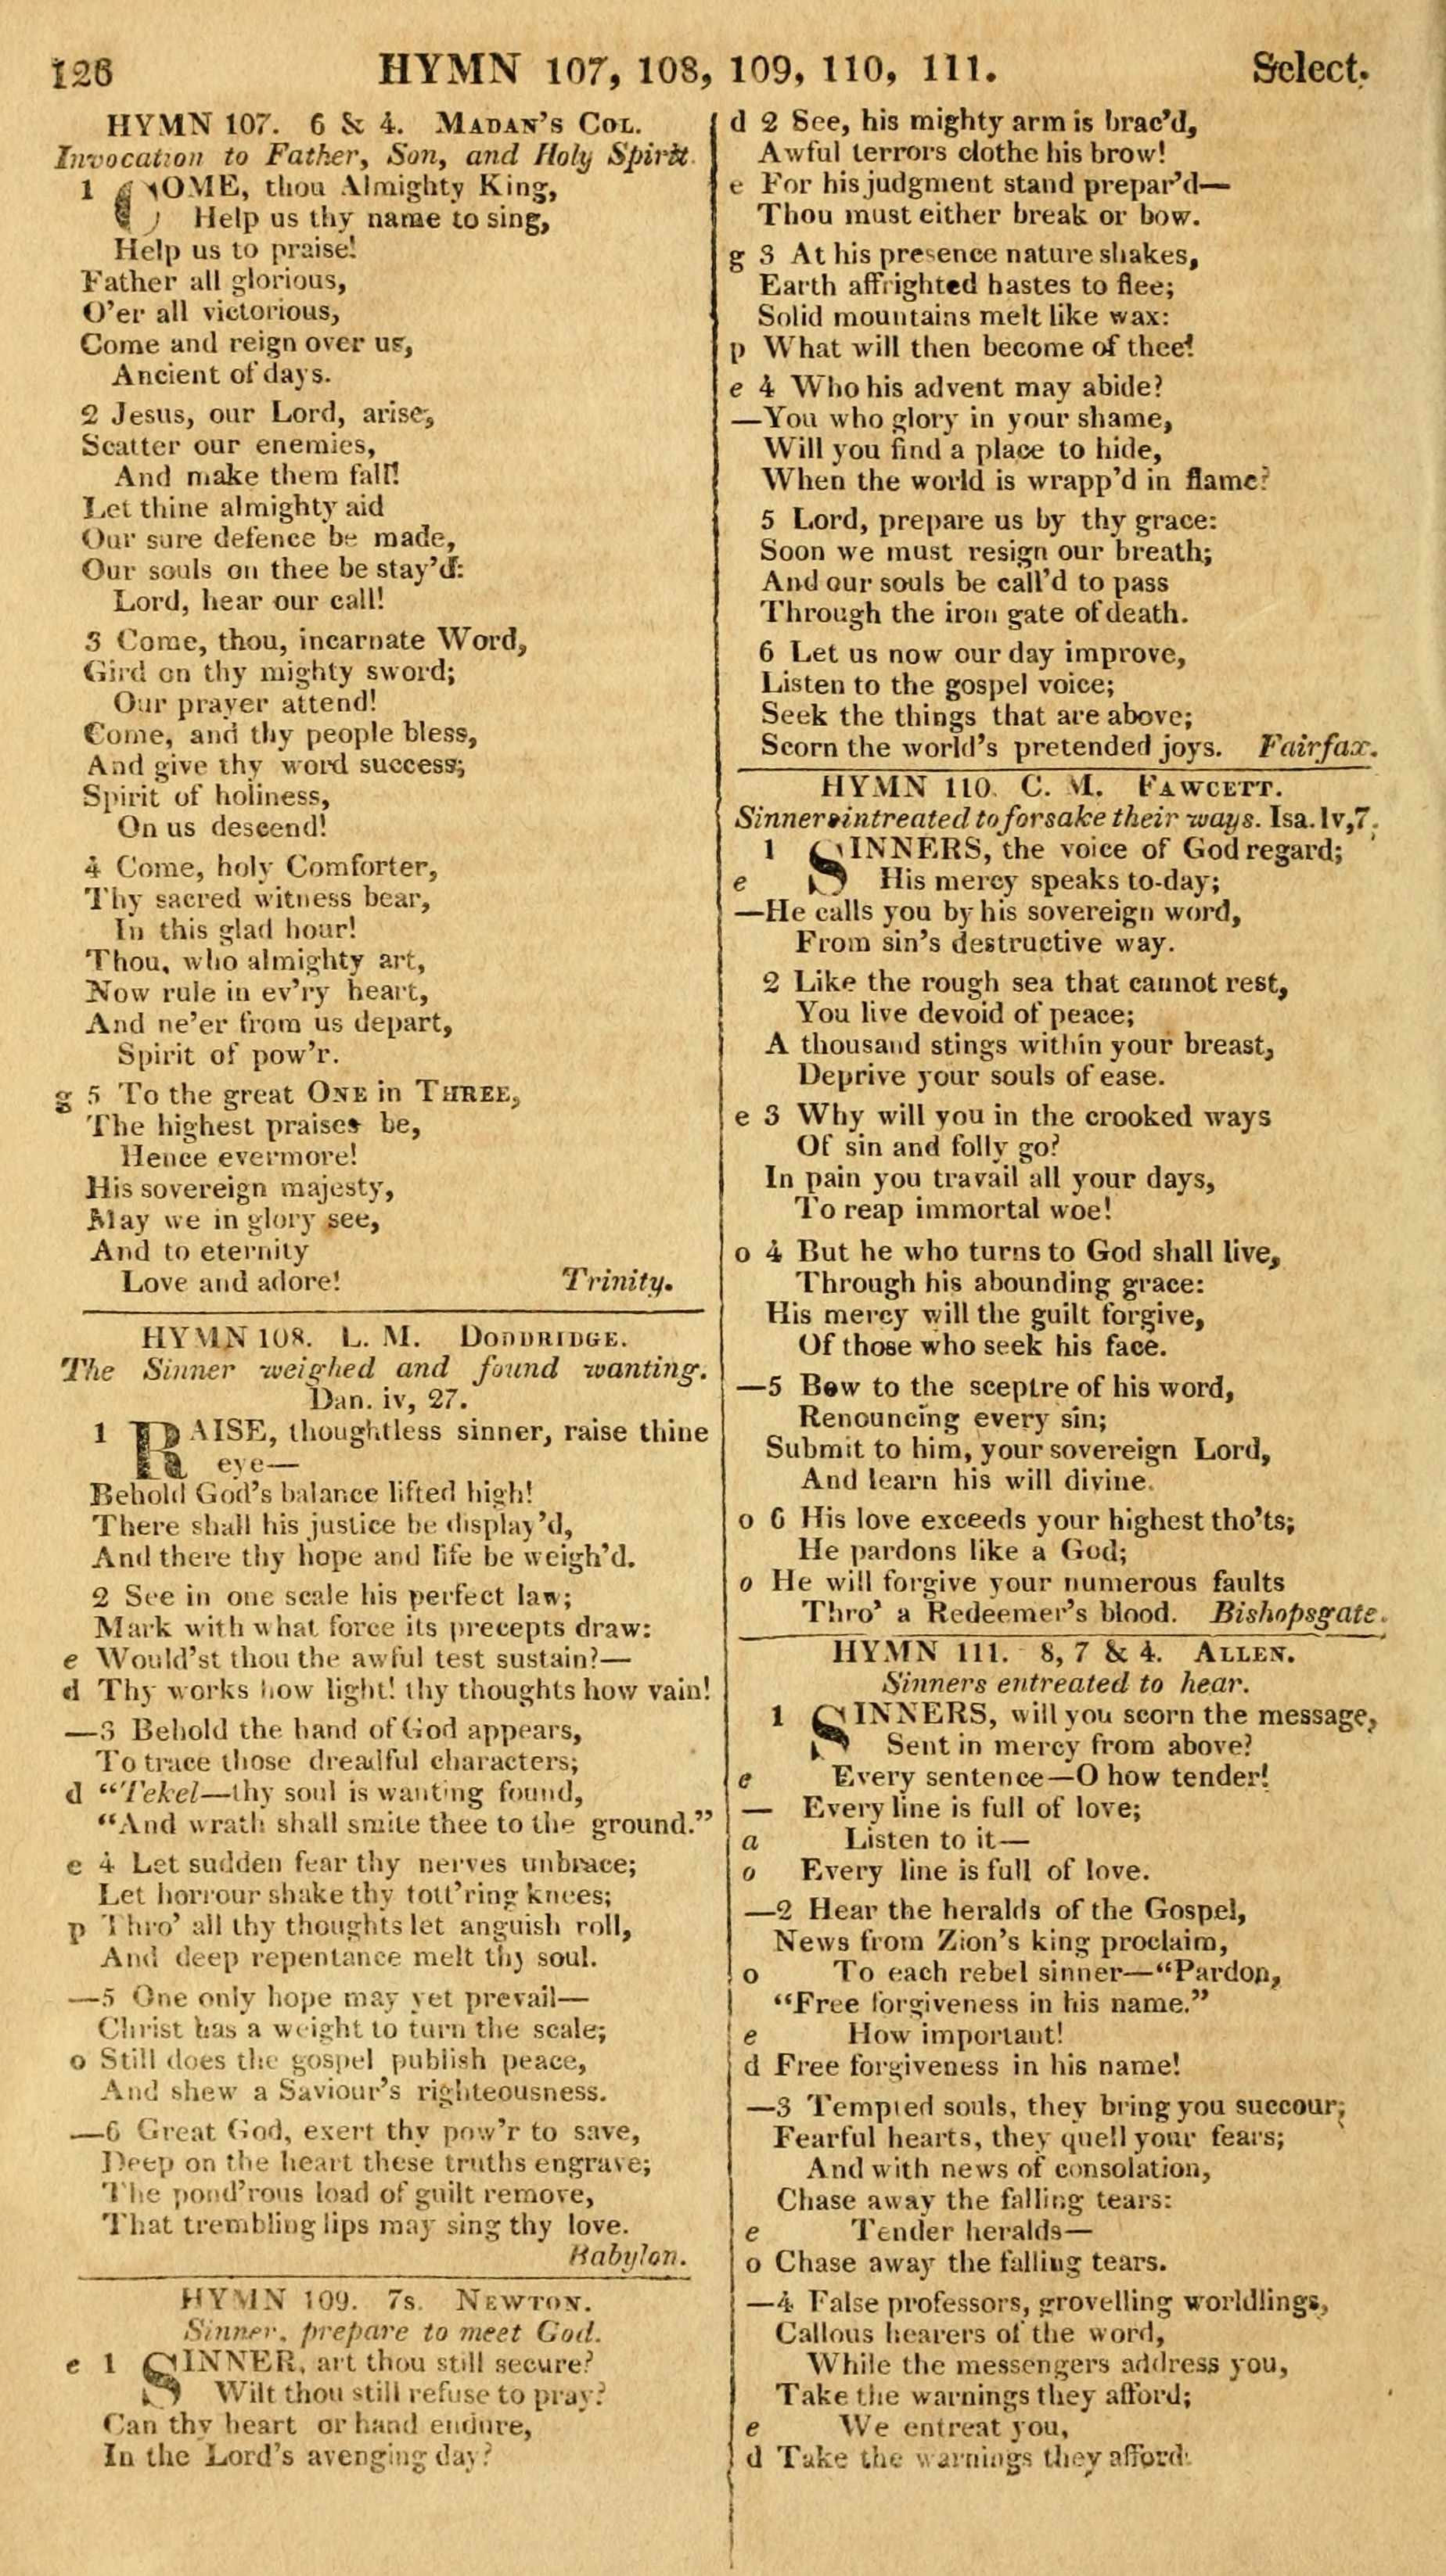 126 HYMN 107, 108, 109, 110, 111. Select.
HYMN 107. 6 & 4. MADAN'S COL.
Invocation to Father, Son, and Holy Spirit.
1 COME, thou Almighty King,
Help us thy name to sing,
Help us to praise!
Father all glorious,
O'er all victorious,
Come and reign over us,
Ancient of days.
2 Jesus, our Lord, arise,
Scatter our enemies,
And make them fall!
Let thine almighty aid
Our sure defence be made,
Our souls on thee be stay'd:
Lord, hear our call!
3 Come, thou, incarnate Word,
Gird on thy mighty sword;
Our prayer attend!
Come, and thy people bless,
And give thy word success;
Spirit of holiness,
On us descend!
4 Come, holy Comforter,
Thy sacred witness bear,
In this glad hour!
Thou, who almighty art,
Now rule in ev'ry heart,
And ne'er from us depart,
Spirit of pow'r.
g 5 To the great ONE in THREE,
The highest praises be,
Hence evermore!
His sovereign majesty,
May we in glory see,
And to eternity
Love and adore! Trinity.
HYMN 108. L. M. DODDRIDGE.
The Sinner weighed and found wanting.
Dan. iv, 27.
1 RAISE, thoughtless sinner, raise thine
eye—
Behold God's balance lifted high!
There shall his justice be display'd,
And there thy hope and life be weigh'd.
2 See in one scale his perfect law;
Mark with what force its precepts draw:
e Would'st thou the awful test sustain?—
d Thy works how light! thy thoughts how vain!
—3 Behold the hand of God appears,
To trace those dreadful characters;
d "Tekel—thy soul is wanting found,
"And wrath shall smite thee to the ground."
e 4 Let sudden fear thy nerves unbrace;
Let horrour shake thy tott'ring knees;
p Thro' all thy thoughts let anguish roll,
And deep repentance melt thy soul.
—5 One only hope may yet prevail—
Christ has a weight to turn the scale;
o Still does the gospel publish peace,
And shew a Saviour's righteousness.
—6 Great God, exert thy pow'r to save,
Deep on the heart these truths engrave;
The pond'rous load of guilt remove,
That trembling lips may sing thy love.
Babylon.
HYMN 109. 7s. NEWTON.
Sinner, prepare to meet God.
e 1 SINNER, art thou still secure?
Wilt thou still refuse to pray?
Can thy heart or hand endure,
In the Lord's avenging day?
d 2 See, his mighty arm is brac'd,
Awful terrors clothe his brow!
e For his judgment stand prepar'd—
Thou must either break or bow.
g 3 At his presence nature shakes,
Earth affrighted hastes to flee;
Solid mountains melt like wax:
p What will then become of thee!
e 4 Who his advent may abide?
—You who glory in your shame,
Will you find a place to hide,
When the world is wrapp'd in flame?
5 Lord, prepare us by thy grace:
Soon we must resign our breath;
And our souls be call'd to pass
Through the iron gate of death.
6 Let us now our day improve,
Listen to the gospel voice;
Seek the things that are above;
Scorn the world's pretended joys. Fairfax.
HYMN 110. C. M. FAWCETT.
Sinners intreated to forsake their ways. Isa. lv,7.
1 SINNERS, the voice of God regard;
e His mercy speaks to-day;
—He calls you by his sovereign word,
From sin's destructive way.
2 Like the rough sea that cannot rest,
You live devoid of peace;
A thousand stings within your breast,
Deprive your souls of ease.
e 3 Why will you in the crooked ways
Of sin and folly go?
In pain you travail all your days,
To reap immortal woe!
o 4 But he who turns to God shall live,
Through his abounding grace:
His mercy will the guilt forgive,
Of those who seek his face.
—5 Bow to the sceptre of his word,
Renouncing every sin;
Submit to him, your sovereign Lord,
And learn his will divine.
o 6 His love exceeds your highest tho'ts;
He pardons like a God;
o He will forgive your numerous faults
Thro' a Redeemer's blood. Bishopsgate.
HYMN 111. 8, 7 & 4. ALLEN.
Sinners entreated to hear.
1 SINNERS, will you scorn the message,
Sent in mercy from above?
e Every sentence—O how tender!
— Every line is full of love;
a Listen to it—
o Every line is full of love.
—2 Hear the heralds of the Gospel,
News from Zion's king proclaim,
o To each rebel sinner—"Pardon,
"Free forgiveness in his name."
e How important!
d Free forgiveness in his name!
—3 Tempted souls, they bring you succour;
Fearful hearts, they quell your fears;
And with news of consolation,
Chase away the falling tears:
e Tender heralds—
o Chase away the falling tears.
—4 False professors, grovelling worldlings,
Callous hearers of the word,
While the messengers address you,
Take the warnings they afford;
e We entreat you,
d Take the warnings they afford.